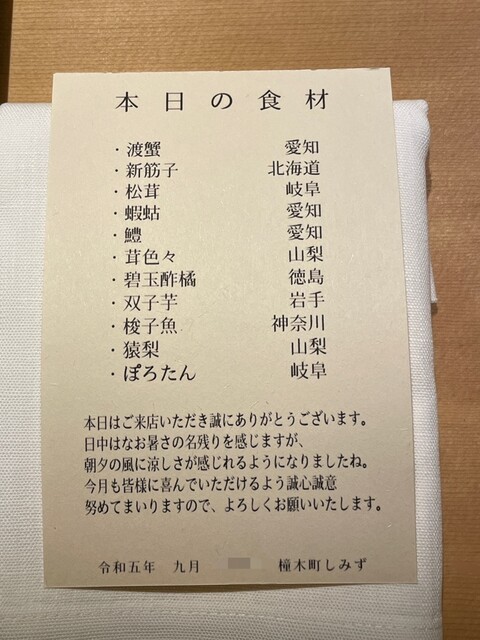 本日の食材
・渡蟹 愛知
・新筋子 北海道
・松茸 岐阜
・蝦蛄 愛知
・鱧 愛知
・茸色々 山梨
・碧玉酢橘 徳島
・双子芋 岩手
・梭子魚 神奈川
・猿梨 山梨
・ぽろたん 岐阜
本日はご来店いただき誠にありがとうございます。
日中はなお暑さの名残りを感じますが、
朝夕の風に涼しさが感じれるようになりましたね。
今月も皆様に喜んでいただけるよう誠心誠意
努めてまいりますので、よろしくお願いいたします。
令和五年 九月 橦木町しみず